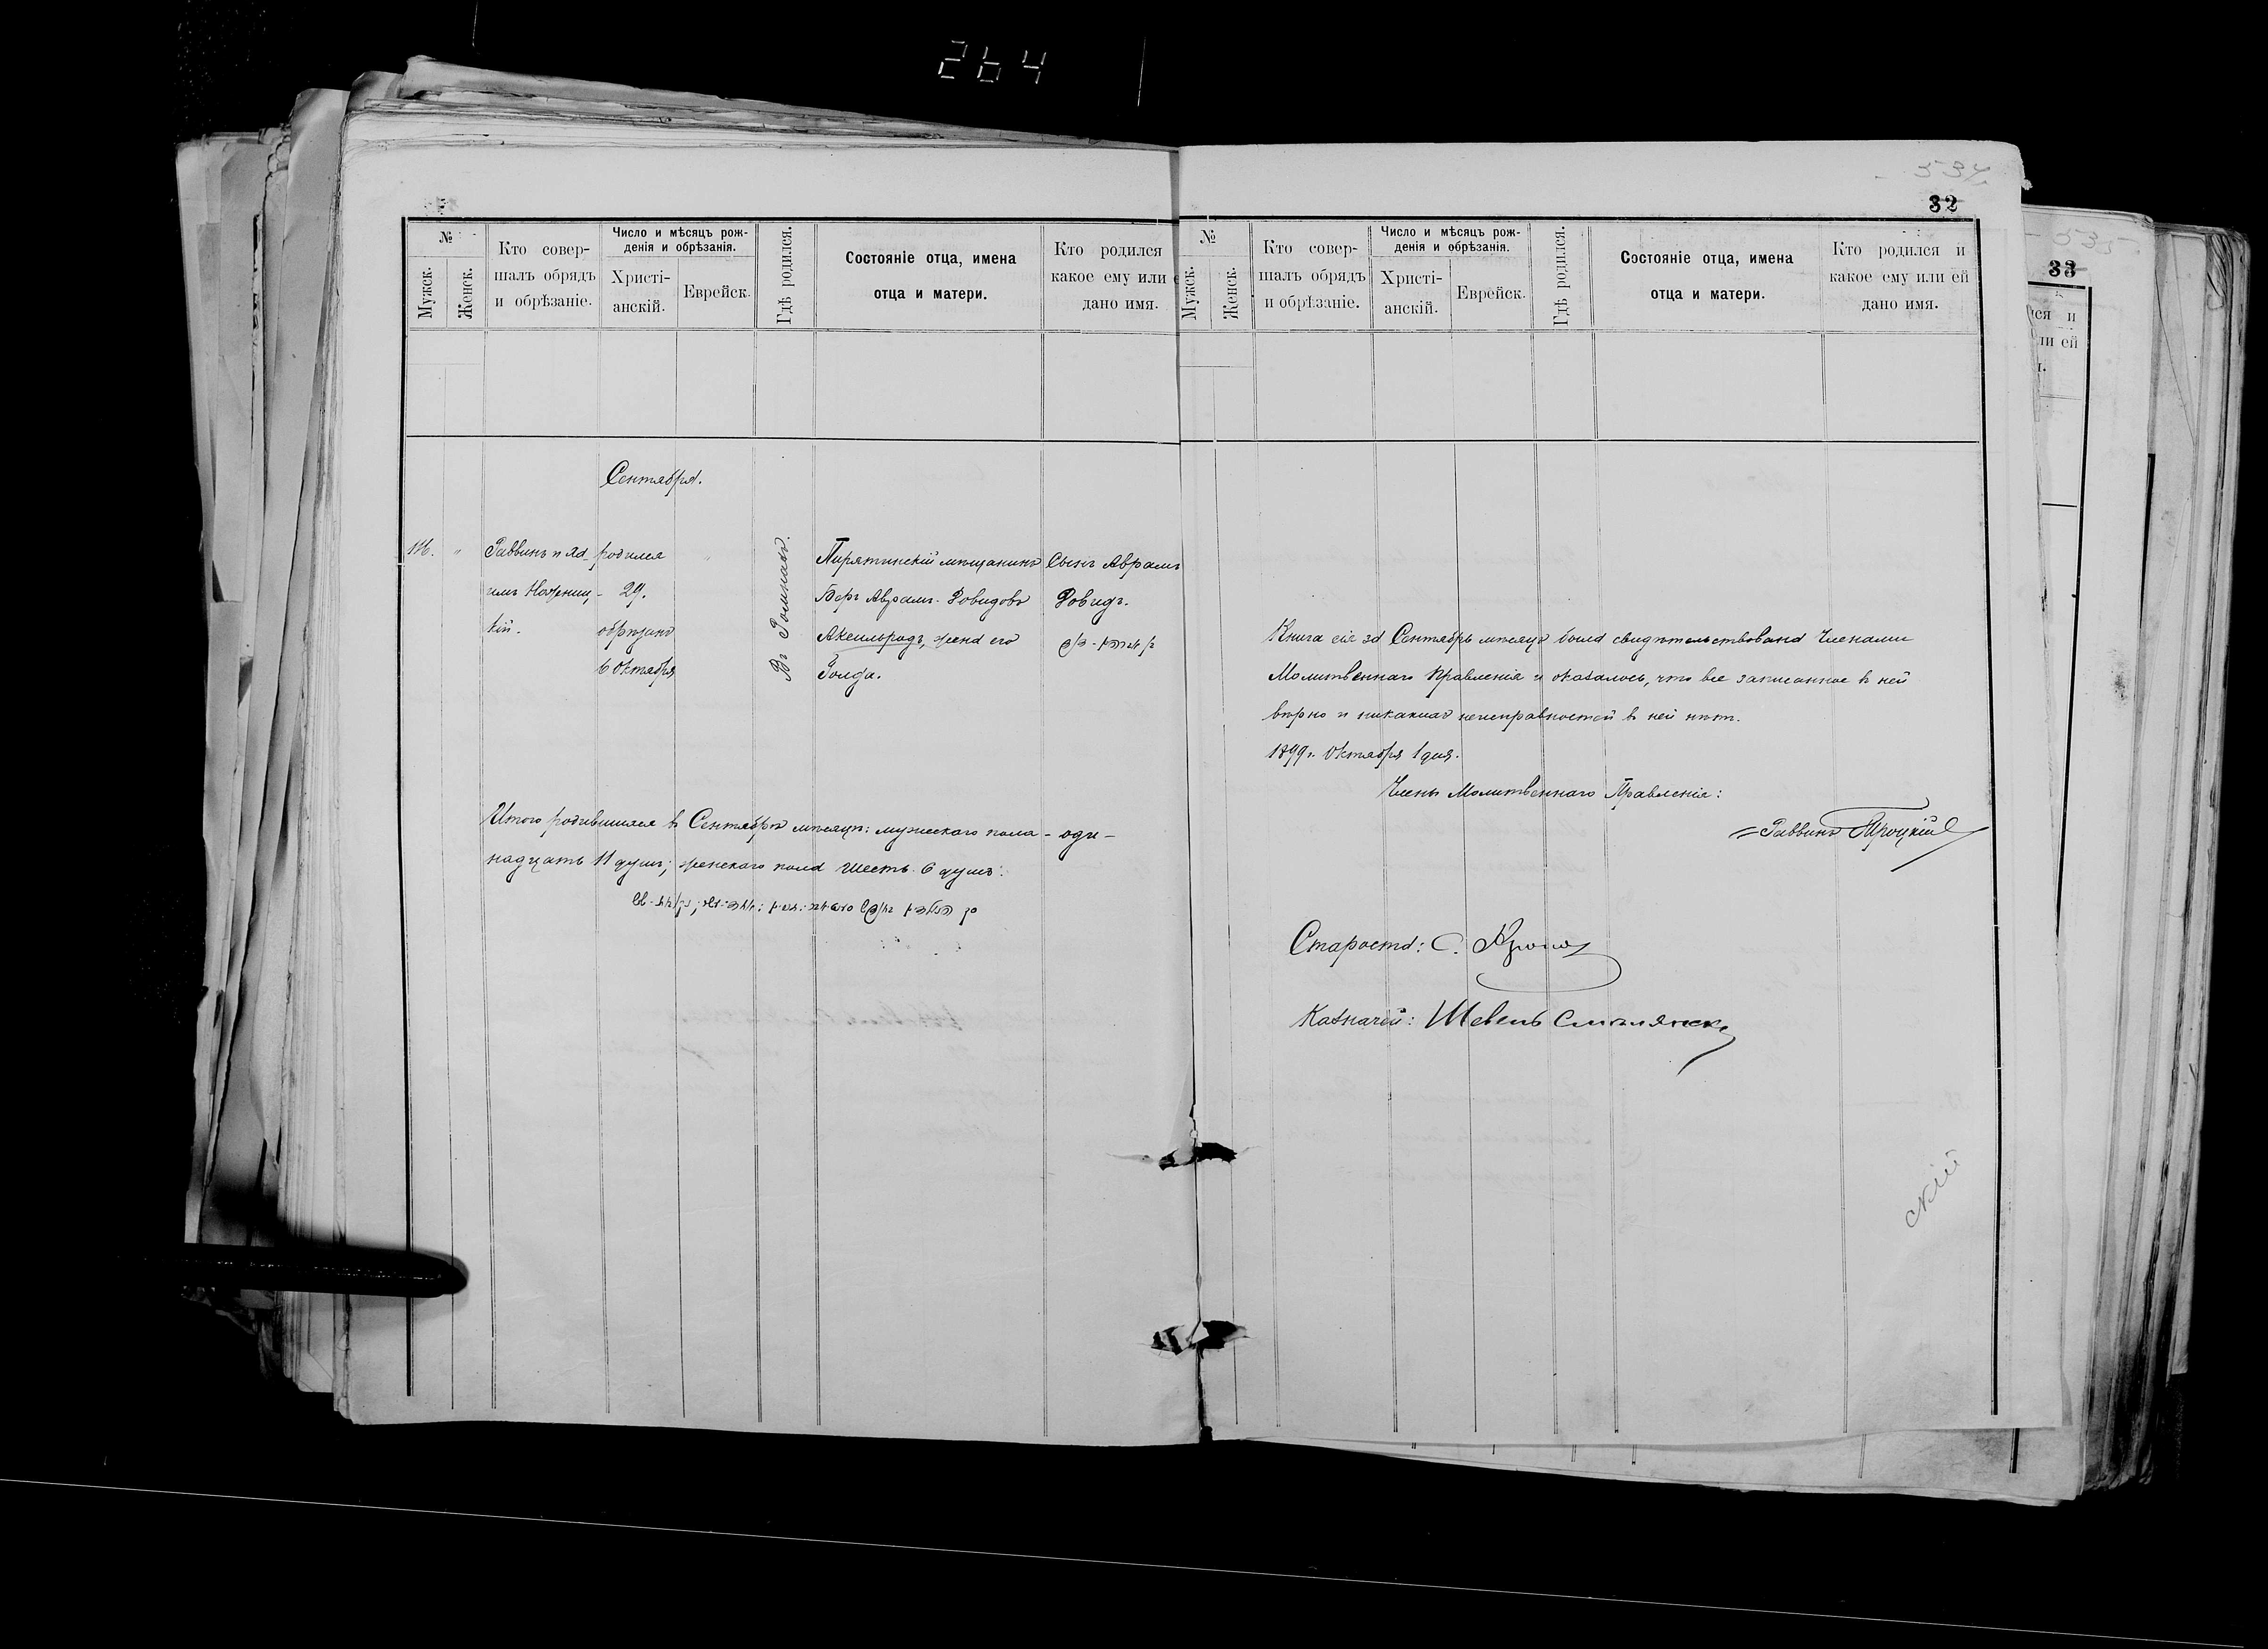 264
534
32
№
Мужск.
Женск.
Кто совер-
шалъ обрядъ
и обрѣзаніе.
Число и мѣсяцъ рож-
денія и обрѣзанія.
Христі-
анскій.
Еврейск.
Гдѣ родился.
Состояніе отца, имена
отца и матери.
Кто родился
какое ему или
дано имя.
Сентября.
Раввинъ и
кій.
родился
29.
обрѣзанъ
6 Октября
Въ Ромнахъ.
Пирятинскій мѣщанинъ
Беръ Аврамъ-Довидовъ
Аксельродъ, жена его
Голда.
Сынъ Аврамъ
Довидъ.
Итого родившихся въ Сентябрѣ мѣсяцѣ: мужескаго пола - оди-
надцать 11 душъ; женскаго пола шесть 6 душъ.
№
Мужск.
Женск.
Кто совер-
шалъ обрядъ
и обрѣзаніе.
Число и мѣсяцъ рож-
денія и обрѣзанія.
Христі-
анскій.
Еврейск.
Гдѣ родился.
Состояніе отца, имена
отца и матери.
Кто родился и
какое ему или ей
дано имя.
Книга сія за Сентябрь мѣсяцъ была свидѣтельствована Членами
Молитвеннаго Правленія и оказалось, что все записанное в ней
вѣрно и никакихъ неисправностей в ней нѣт.
1899 г. Октября 1 дня.
Члены Молитвеннаго Правленія:
Раввинъ Троцкій
Староста: С.
Казначей: Шевель
скій
535
33
лся и
ли ей